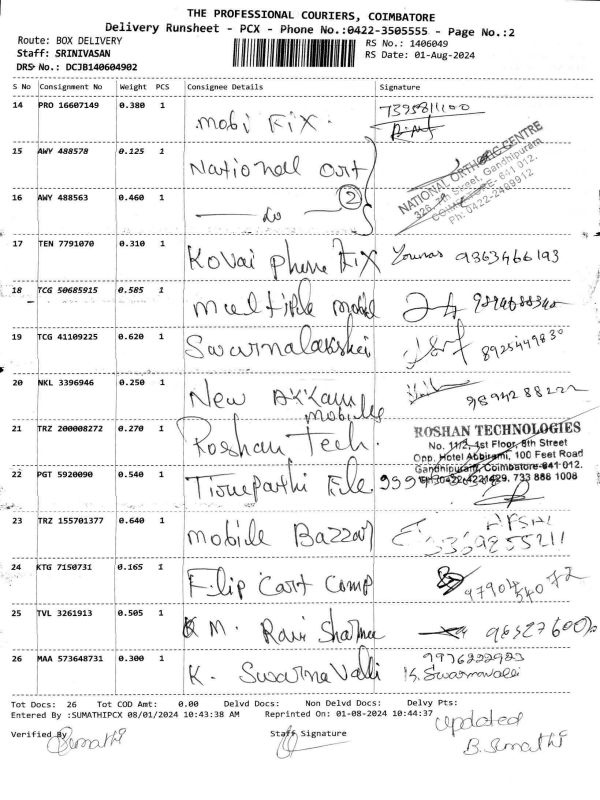 THE PROFESSIONAL COURIERS, COIMBATORE
Delivery Runsheet - PCX - Phone No.:0422-3505555 - Page No.:2
Route: BOX DELIVERY RS No.: 1406049
Staff: SRINIVASAN RS Date: 01-Aug-2024
DRS No.: DCJB140604902
S No Consignment No Weight PCS Consignee Details Signature
14 PRO 16607149 0.380 1 mobi Fix. 7395811100
15 AWY 488578 0.125 1 National ort
NATIONAL ORTHOTIC CENTRE
326, 7th Street, Gandhipuram,
COIMBATORE- 641 012.
Ph: 0422-2499912
16 AWY 488563 0.460 1 do 2
17 TEN 7791070 0.310 1 Kovai phone Fix Younas 9363466193
18 TCG 50685915 0.585 1 multiple mobil
19 TCG 41109225 0.620 1 Swarnalakshmi 8925449830
20 NKL 3396946 0.250 1 New Akkam mobiles
21 TRZ 200008272 0.270 1 Roshan Tech.
ROSHAN TECHNOLOGIES
No. 11/2, 1st Floor, 8th Street
Opp. Hotel Abbirami, 100 Feet Road
Gandhipuram, Coimbatore-641 012.
0422-4221429. 733 888 1008
22 PGT 5920090 0.540 1
23 TRZ 155701377 0.640 1 mobile Bazzar
24 KTG 7150731 0.165 1 Flip Cart Comp 97904 54072
25 TVL 3261913 0.505 1 K M. Ravi Sharma
26 MAA 573648731 0.300 1 K. Swarna Valli 9976222923
K. Swarnavalli
Tot Docs: 26 Tot COD Amt: 0.00 Delvd Docs: Non Delvd Docs: Delvy Pts:
Entered By :SUMATHIPCX 08/01/2024 10:43:38 AM Reprinted On: 01-08-2024 10:44:37
updated
Verified By Sumathi Staff Signature B. Sumathi